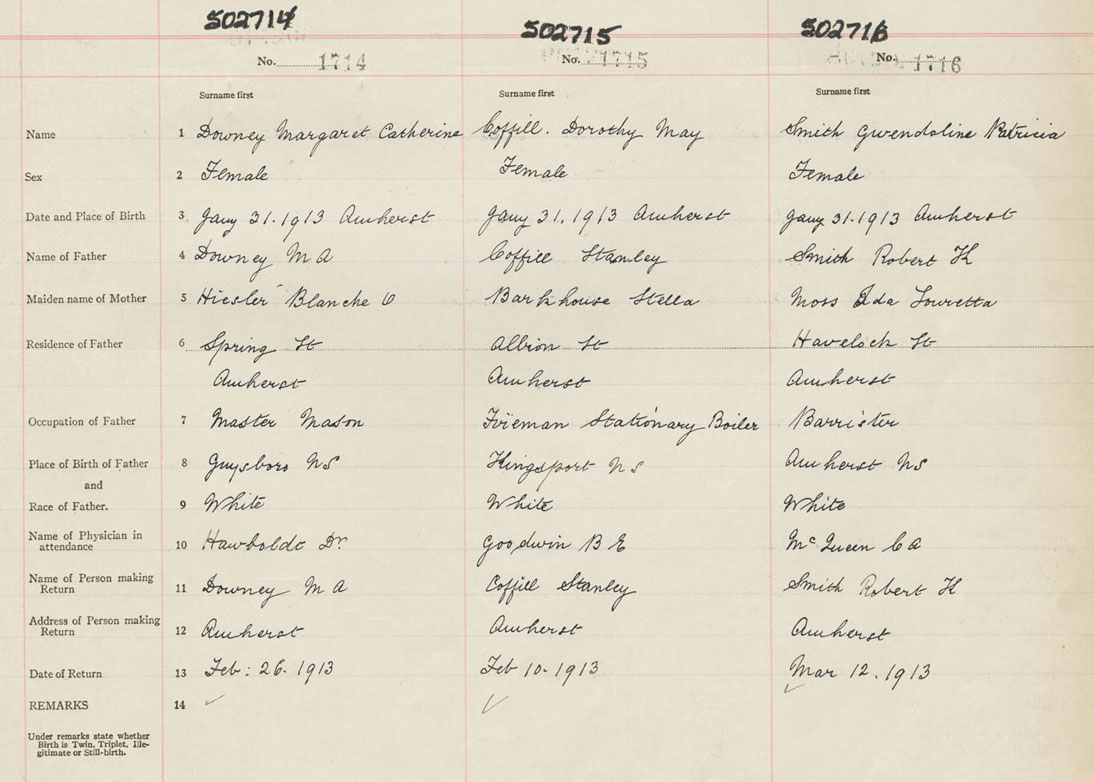 502714 502715 502716
No. 1714 No. 1715 No. 1716
Surname first Surname first Surname first
Name 1 Downey Margaret Catherine Coffill. Dorothy May Smith Gwendoline Patricia
Sex 2 Female Female Female
Date and Place of Birth 3 Jany 31. 1913 Amherst Jany 31. 1913 Amherst Jany 31. 1913 Amherst
Name of Father 4 Downey M A Coffill Stanley Smith Robert K
Maiden name of Mother 5 Hiesler Blanche Barkhouse Stella Moss Ida Louretta
Residence of Father 6 Spring St Albion St Havelock St
Amherst Amherst Amherst
Occupation of Father 7 Master Mason Fireman Stationary Boiler Barrister
Place of Birth of Father 8 Guysboro NS Kingsport NS Amherst NS
and
Race of Father. 9 White White White
Name of Physician in
attendance 10 Hawboldt Dr. Goodwin B E McQueen C A
Name of Person making
Return 11 Downey M A Coffill Stanley Smith Robert K
Address of Person making
Return 12 Amherst Amherst Amherst
Date of Return 13 Feb: 26. 1913 Feb 10. 1913 Mar 12. 1913
REMARKS 14
Under remarks state whether
Birth is Twin, Triplet, Ille-
gitimate or Still-birth.